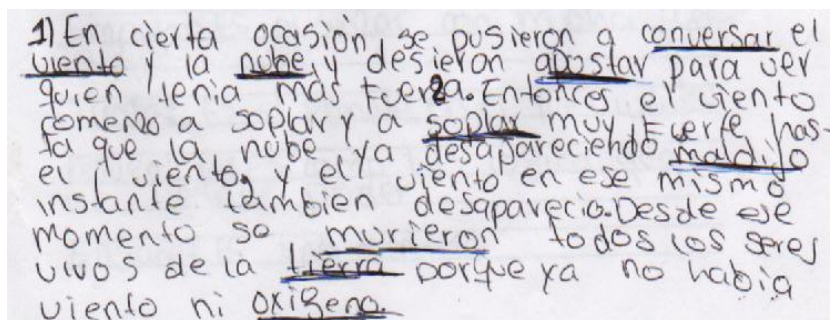 1) En cierta ocasión se pusieron a conversar el
viento y la nube, y desieron apostar para ver
quien tenia más fuerza. Entonces el viento
comenzo a soplar y a soplar muy fuerte has-
ta que la nube ya desapareciendo maldijo
el viento, y el viento en ese mismo
instante tambien desaparecio. Desde ese
momento se murieron todos los seres
vivos de la tierra porque ya no habia
viento ni oxigeno.